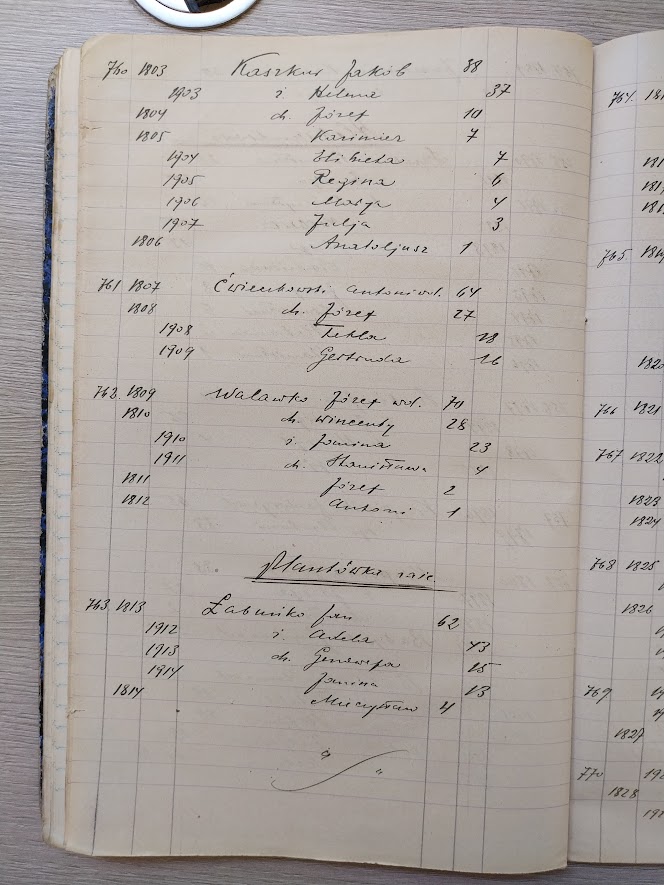 760 1803 Kaszkur Jakób 38
1903 i Helena 37
1804 ch. Józef 10
1805 Kazimierz 7
1904 Elżbieta 7
1905 Regina 6
1906 Marja 4
1907 Julja 3
1806 Anatoljusz 1
761 1807 Ćwiechowski Antoni wd. 64
1808 ch. Józef 27
1908 Tekla 18
1909 Gertruda 16
762. 1809 Walawko Józef wd. 70
1810 ch. Wincenty 28
1910 i. Janina 23
1911 ch. Stanisława 4
1811 Józef 2
1812 Antoni 1
763 1813 Łabunko Jan 62
1912 i. Adela 43
1913 ch. Genowefa 15
1914 Janina 13
1814 Mieczysław 4
764.
765
1820
766 1821
767 1822
1823
1824
768 1825
1826
769
1827
770
1828